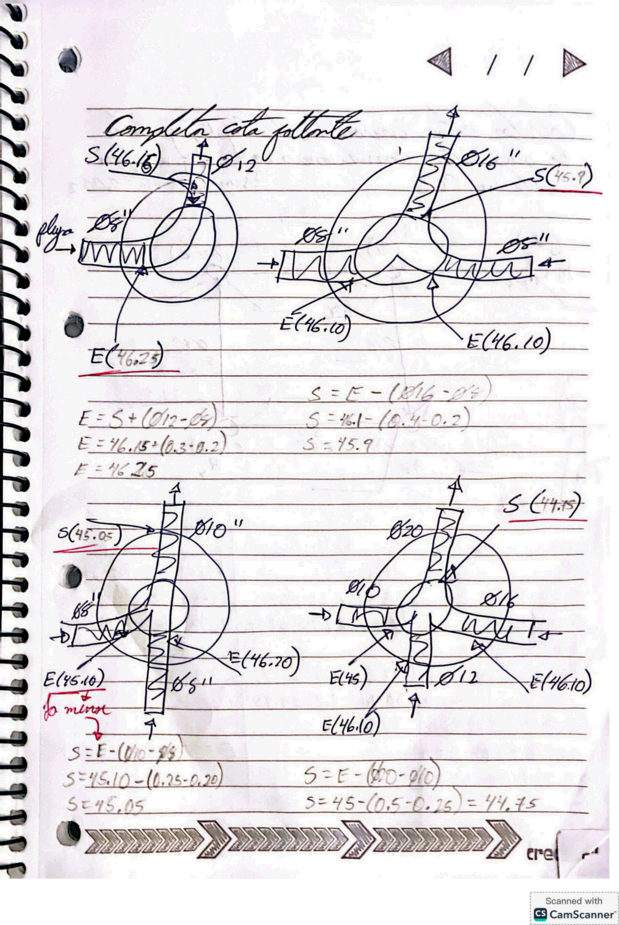 / /
Completar cota faltante
S(46.15)
Ø12
Ø8"
E(46.25)
Ø16"
S(45.9)
Ø8"
Ø8"
E(46.10)
E(46.10)
E = S + (Ø12-Ø8)
E = 46.15+(0.3-0.2)
E = 46.25
S = E - (Ø16 - Ø8)
S = 46.1-(0.4-0.2)
S = 45.9
S(45.05)
Ø10"
Ø8"
E(45.10)
E(46.20)
Ø8"
S=E-(Ø10-Ø8)
S=45.10-(0.25-0.20)
S=45.05
S(44.75)
Ø20
Ø10
Ø16
E(45)
E(46.10)
Ø12
E(46.10)
S = E-(Ø20-Ø10)
S=45-(0.5-0.25) = 44.75
Scanned with
CS CamScanner